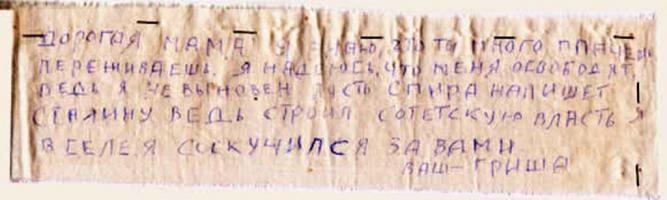 ДОРОГАЯ МАМА Я ЗНАЮ, ЧТО ТЫ МНОГО ПЛАЧЕШЬ
ПЕРЕЖИВАЕШЬ. Я НАДЕЮСЬ, ЧТО МЕНЯ ОСВОБОДЯТ,
ВЕДЬ Я НЕ ВЫНОВЕН ПУСТЬ СПИРА НАПИШЕТ
СТАЛИНУ ВЕДЬ СТРОИЛ СОТЕТСКУЮ ВЛАСТЬ Я
ВСЕЛЕЯ СОСКУЧИЛСЯ ЗА ВАМИ
ВАШ - ГРИША